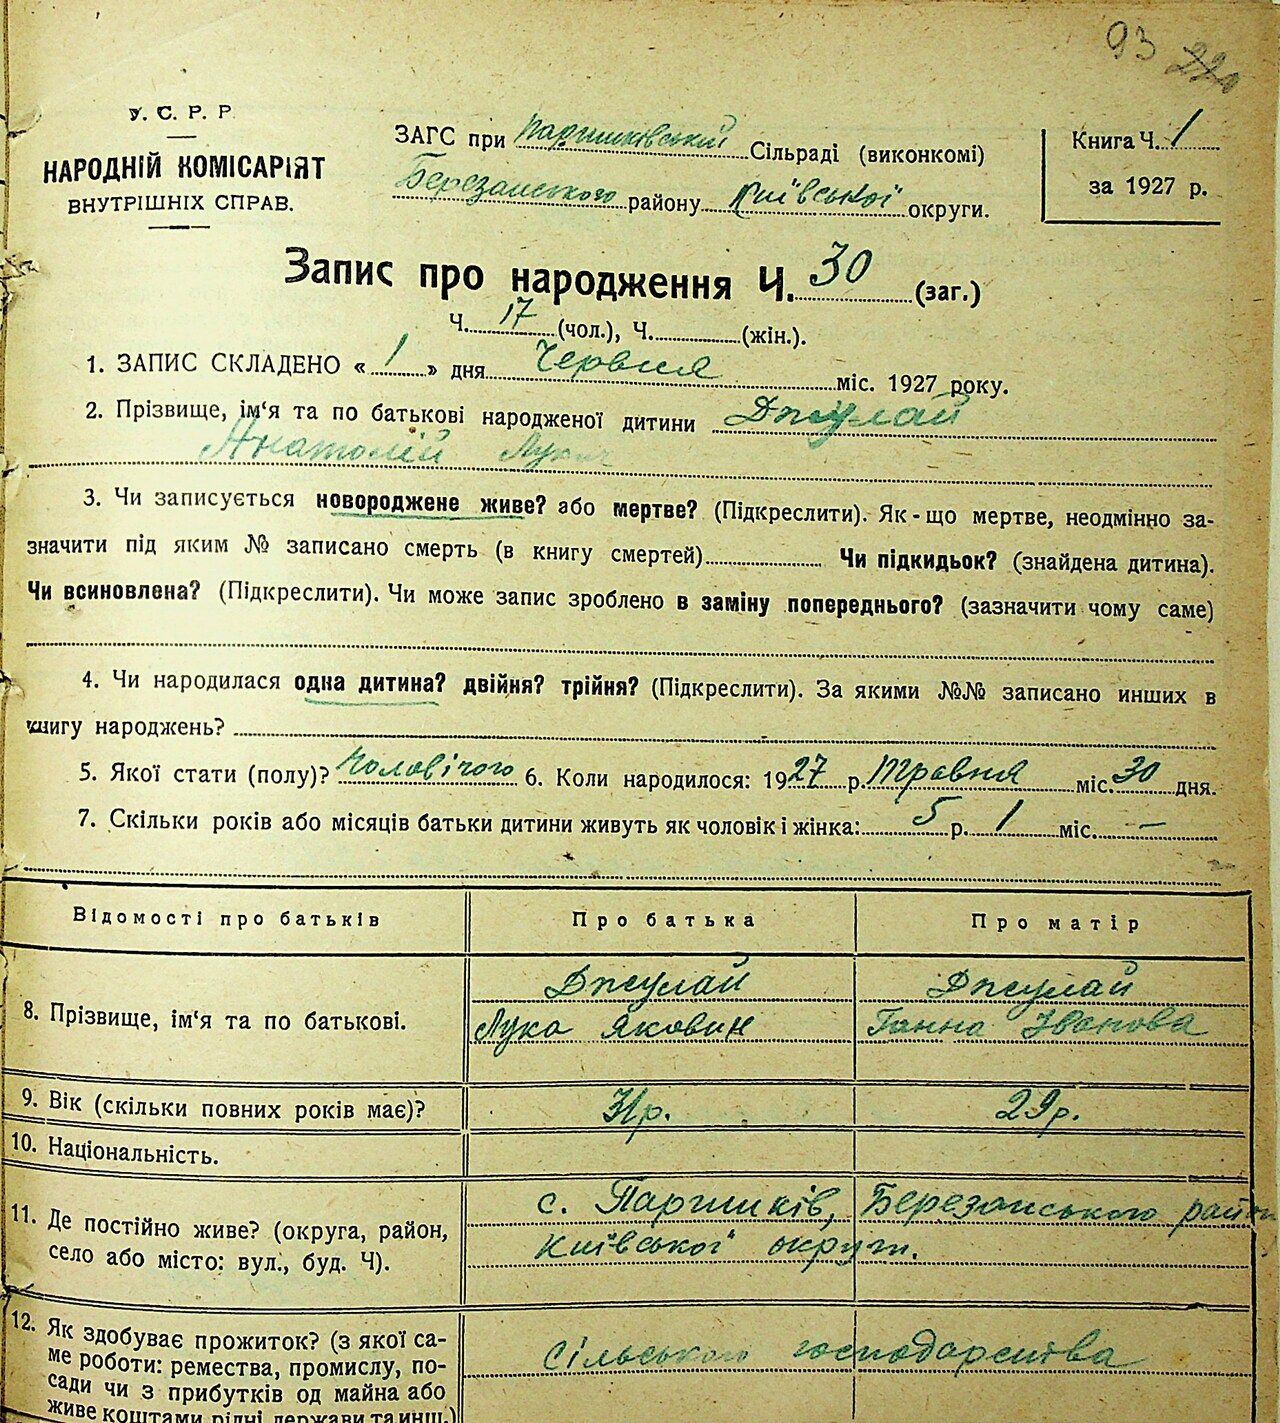 93 220
У. С. Р. Р
НАРОДНІЙ КОМІСАРІЯТ
ВНУТРІШНІХ СПРАВ.
ЗАГС при Паришківській Сільраді (виконкомі)
Березанського району Київської округи.
Книга Ч. 1
за 1927 р.
Запис про народження Ч. 30 (заг.)
Ч. 17 (чол.), Ч. (жін.).
1. ЗАПИС СКЛАДЕНО « 1 » дня Червня міс. 1927 року.
2. Прізвище, ім‘я та по батькові народженої дитини Джулай
Анатолій Лукич
3. Чи записується новороджене живе? або мертве? (Підкреслити). Як-що мертве, неодмінно за-
значити під яким № записано смерть (в книгу смертей) Чи підкидьок? (знайдена дитина).
Чи всиновлена? (Підкреслити). Чи може запис зроблено в заміну попереднього? (зазначити чому саме)
4. Чи народилася одна дитина? двійня? трійня? (Підкреслити). За якими №№ записано инших в
книгу народжень?
5. Якої стати (полу)? Чоловічого 6. Коли народилося: 1927 р. Травня міс. 30 дня.
7. Скільки років або місяців батьки дитини живуть як чоловік і жінка: 5 р. 1 міс. —
Відомості про батьків Про батька Про матір
8. Прізвище, ім‘я та по батькові. Джулай Лука Якович Джулай Ганна Іванова
9. Вік (скільки повних років має)? 31р. 29р.
10. Національність.
11. Де постійно живе? (округа, район, с. Паришків, Березанського район
село або місто: вул., буд. Ч). Київської округи.
12. Як здобуває прожиток? (з якої са-
ме роботи: ремества, промислу, по- Сільського господарства
сади чи з прибутків од майна або
живе коштами рідні, держави та инш.)